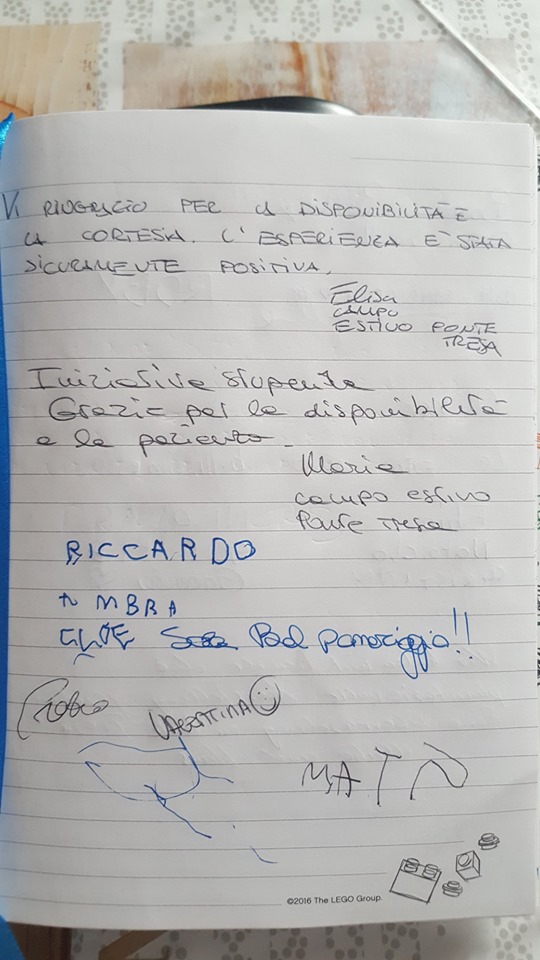 Vi RINGRAZIO PER LA DISPONIBILITÀ E
LA CORTESIA. L'ESPERIENZA È STATA
SICURAMENTE POSITIVA.
Elisa
CAMPO
ESTIVO PONTE
TRESA
Iniziativa stupenda
Grazie per la disponibilità
e la pazienza.
Maria
campo estivo
Ponte Tresa
RICCARDO
MBRA
VALENTINA
MAT
©2016 The LEGO Group.